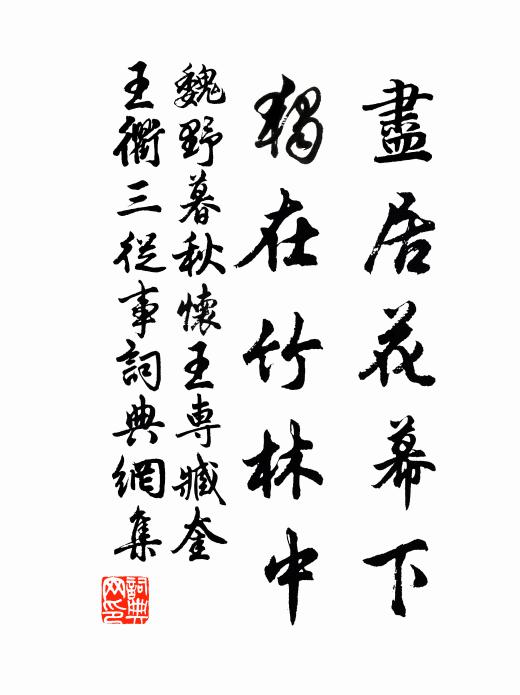 盡居花幕下
獨在竹林中
魏野暮秋懷王専臧奎
王衢三從事詞典網集
詞典網印